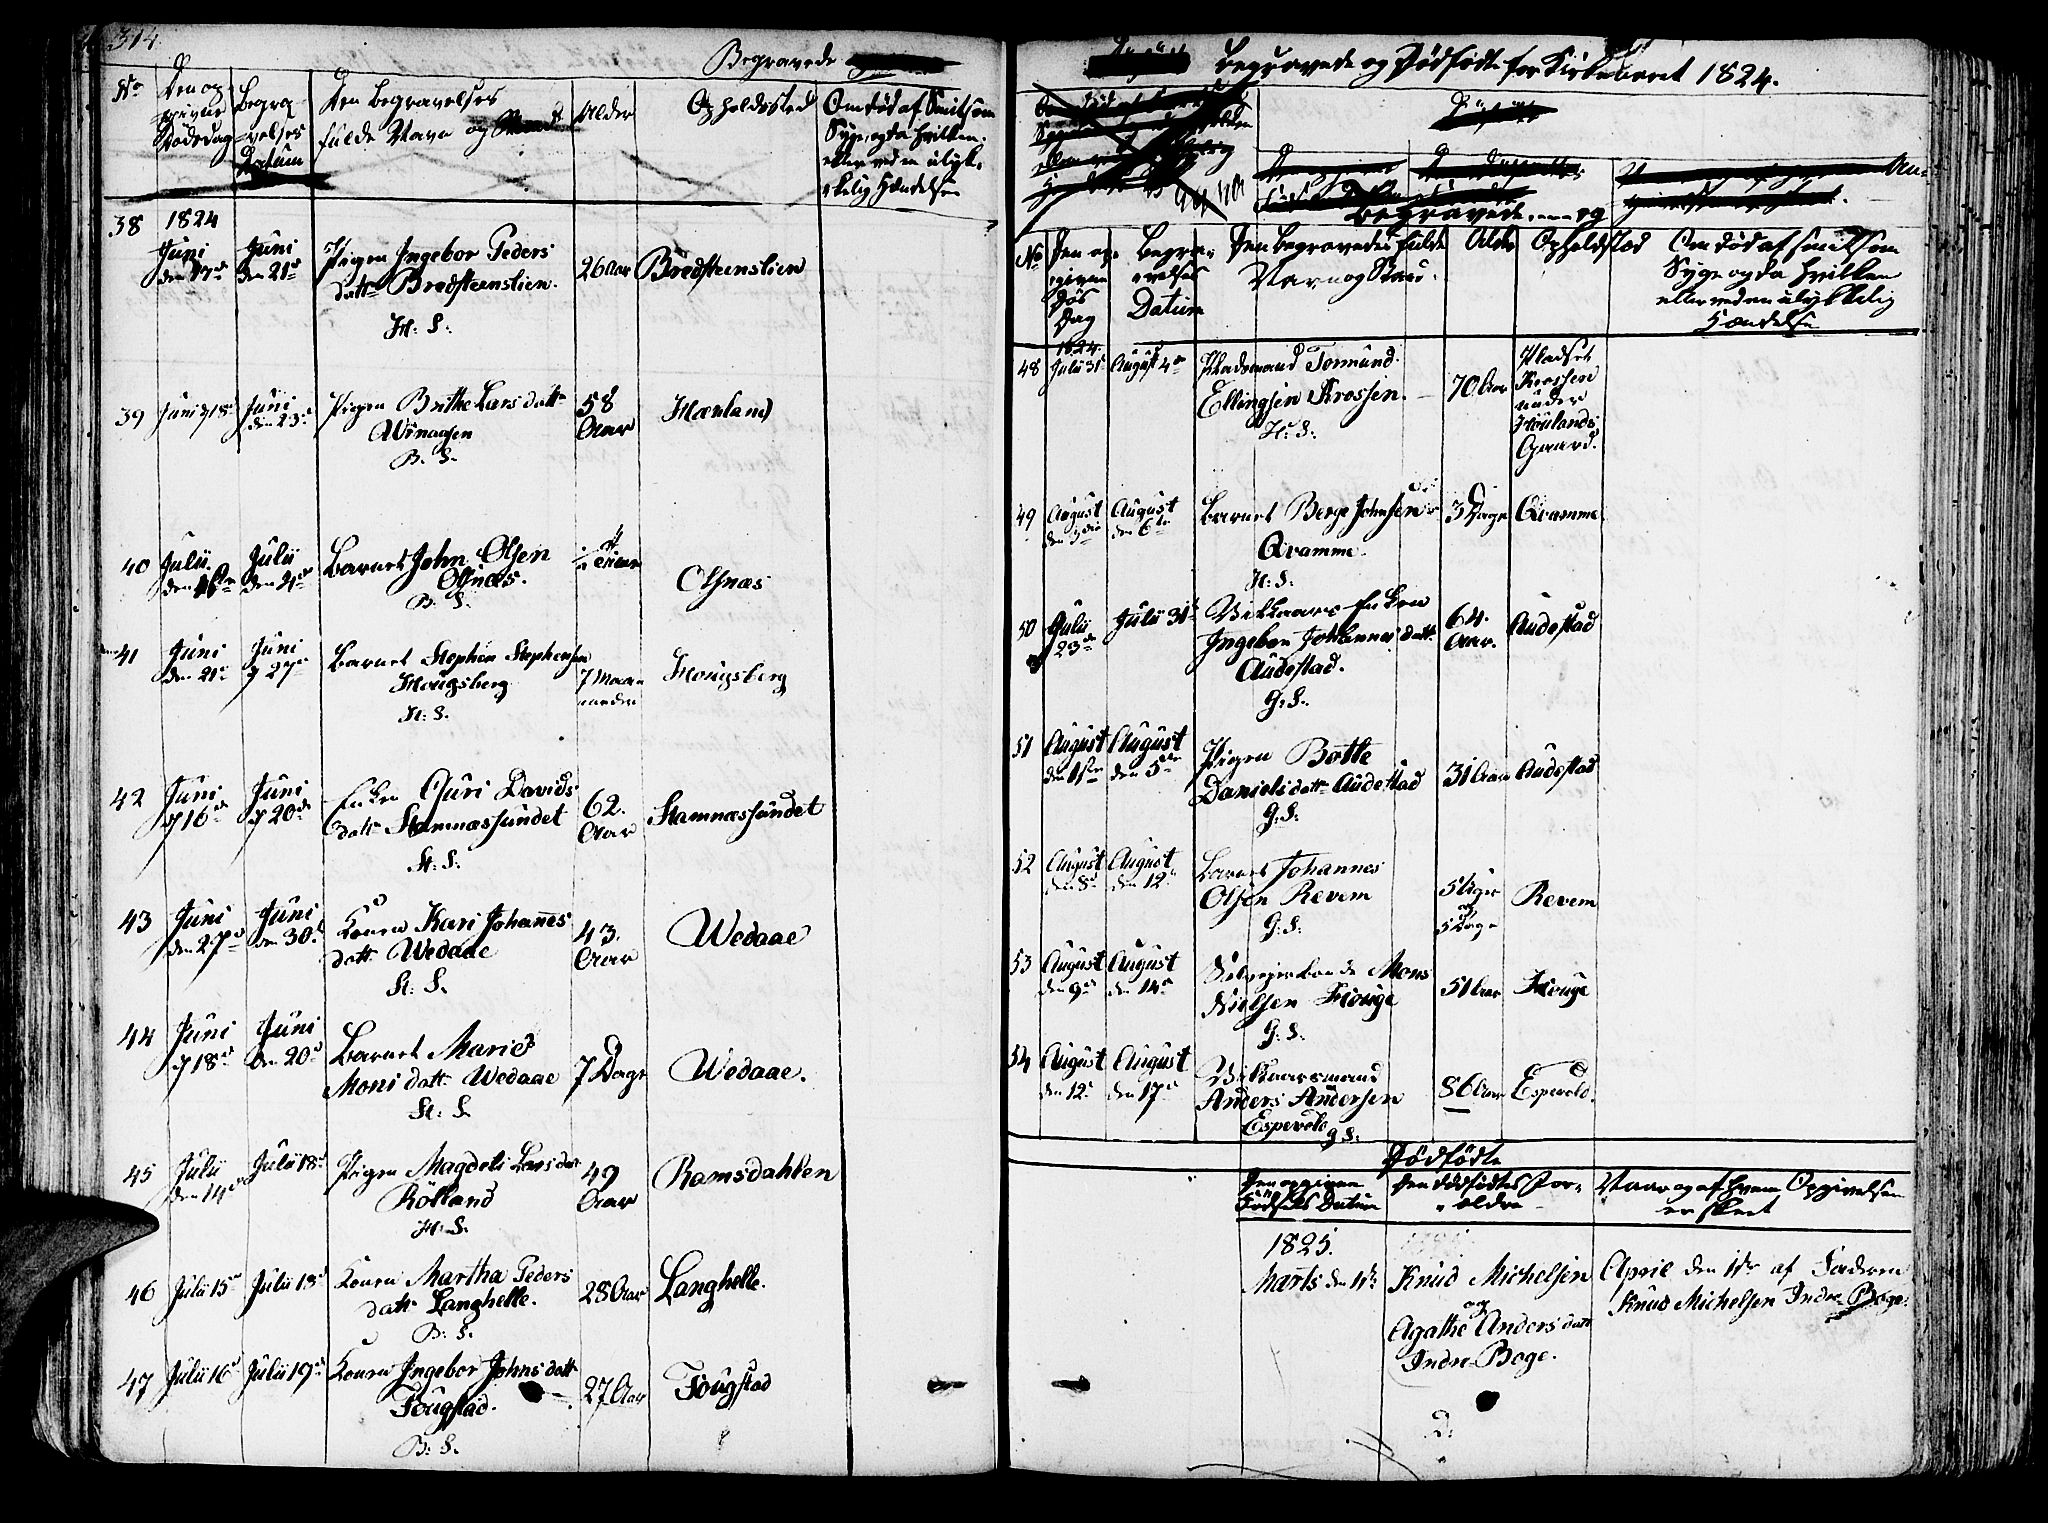 314.
Begravede
No
Den op-
givne
Dødsdag
Begra-
velses
Datum
Den Begravelses
fulde Navn og Stand
Alder
Opholdssted
Om død af Smitsom
Syge, og da hvilken,
eller ved en ulyk-
kelig Hændelse
38
1824
Juni
den 17d
Juni
den 21d
Pigen Ingebor Peders
datter Bredsteenslien.
H: S:
26 Aar
Bredsteenslien
39
Juni d 18d
Juni
den 23d
Pigen Brithe Lars datter
Winaasen
B. S.
58
Aar
Hærland
40
Julii
den 16de
Julii
den 21de
Barnet John Olsen
Olsnæs.
B: S.
Olsnæs
41
Juni
den 21d
Juni
d 27d
Barnet Stephen Stephensen
Hougsberg
H: S.
7 Maa-
neder
Hougsberg
42
Juni
d 16d
Juni
d 20d
Enken Guri Davids
datter Stamnæssundet
St: S:
62.
Aar
Stamnæssundet
43
Juni
den 27d
Juni
den 30d
Konen Kari Johannes
datt Wedaae
St: S.
43.
Aar
Wedaae
44
Juni
d 18d
Juni
den 20d
Barnet Marie
Mons datt Wedaae
St: S
7 Dage
Wedaae.
45
Julii
den 14d
Julii 18d
Pigen Magdeli Lars datt
Rölland
H: S.
49
Aar
Ramsdahlen
46
Julii 15d
Julii 18d
Konen Martha Peders
datt Langhelle.
B: S.
28 Aar
Langhelle.
47
Julii 16d
Julii 19d
Konen Ingebor Johns datt
Fougstad.
B: S.
27 Aar
Fougstad
Begravede og Dødfødte for Kirkeaaret 1824.
Begravede og
No
Den op-
givne
Døds
Dag
Begra-
velses
Datum
Den Begravedes fulde
Navn og Stand.
Alder
Opholdsted
Om død af smitsom
Syge og da hvilken
eller ved en ulykkelig
Hændelse
48
1824.
Julii 31
August 4de
Pladsmand Tormund
Ellingsen Krossen.
H: S.
70 Aar
Pladset
Krossen
under
Houlands
Gaard.
49
August
August
den 6te
Barnet Berge Johnsen
Qvamme.
H: S.
3 Dage
Qvamme.
50
Julii
23d
Julii 31te
Vilkaars Enken
Ingebor Johannes datt
Audestad.
G. S.
64.
Aar.
Audestad
51
August
den 1ste
August
den 5te
Pigen Botte
Daniels datt Audestad
G: S.
31 Aar
Audestad
52
August
den 8d
August
den 12d
Barnet Johannes
Olsen Revem
G: S.
5 Uger
og
5 Dage
Revem
53
August
den 9d
August
den 14d
Mons
Nielsen Houge
G: S.
51 Aar
Houge
54
August
den 12d
August
den 17d
Vilkaarsmand
Anders Andersen
Espevold
G S:
86 Aar
Espevold.
Dødfødte
Den opgivne
Fødsels Datum
Den Dødfødtes For-
ældre
Naar og af hvem Opgivelsen
er skeet
1825.
Marts den 11te
Knud Michelsen
og
Agathe Anders datt
Indre-Boge.
April den 1ste af Faderen
Knud Michelsen Indre Boge.